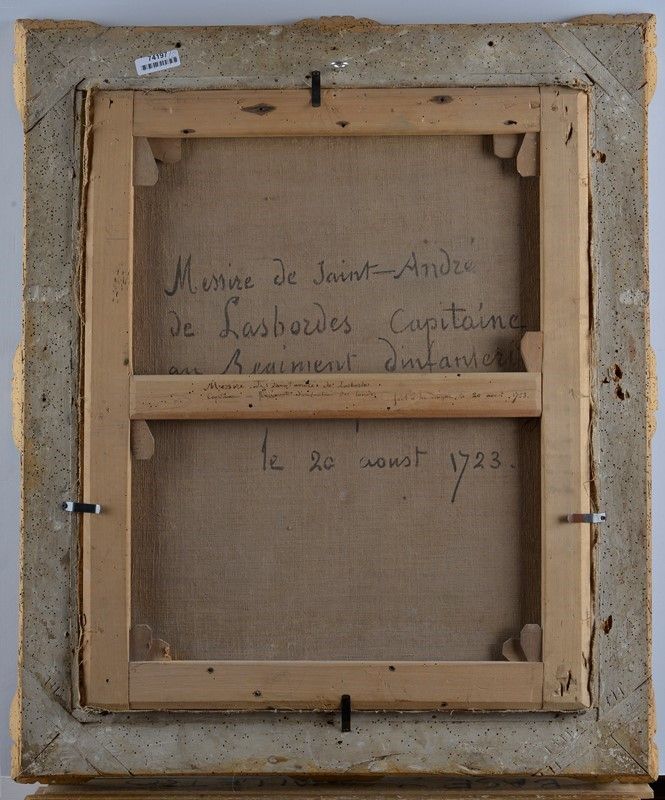 74197
Messire de Saint-André
de Lasbordes Capitaine
au Regiment dinfanteri
Messire de Saint andré de Lasbordes
Capitaine Regiment le 20 aout 1723.
le 20 aoust 1723.